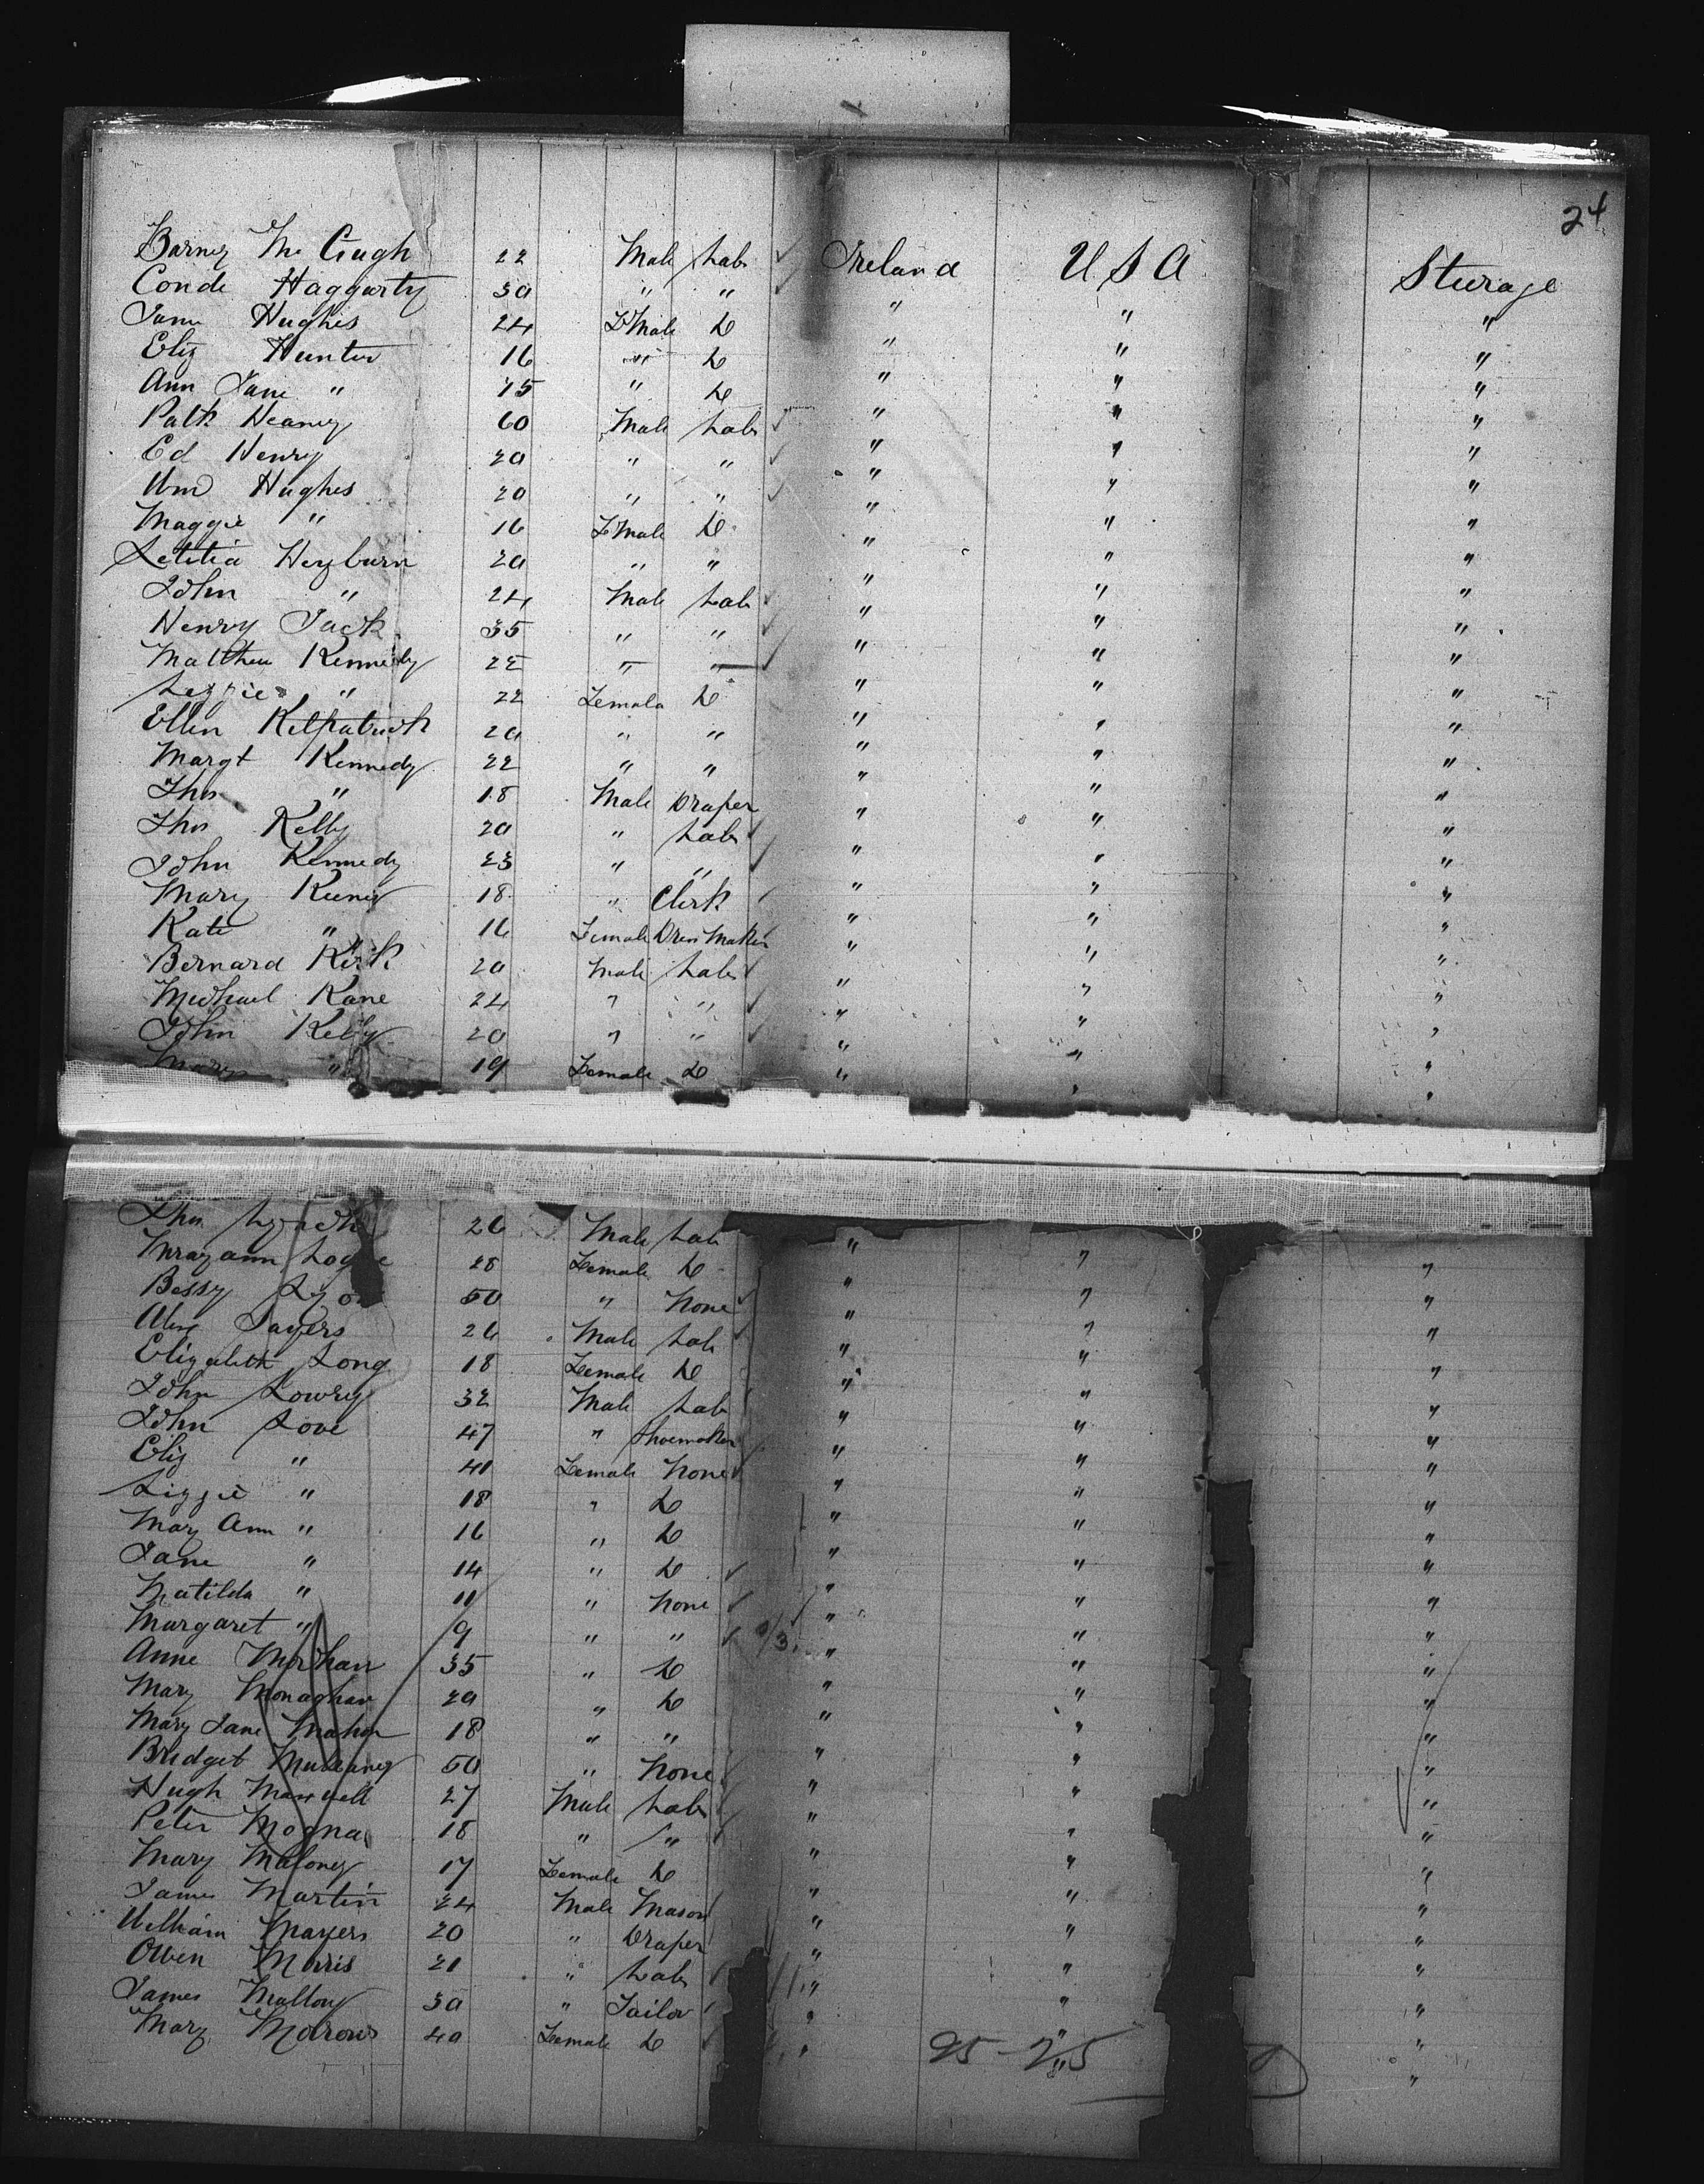 24
Barney Mc Gugh 22 Male Labr Ireland U S A Sturage
Conde Haggarty 30 " " " " "
Jane Hughes 24 F Male D " " "
Eliz Hunter 16 " D " " "
Ann Jane " 15 " D " " "
Patk Heaney 60 Male Labr " " "
Ed Henry 20 " " " " "
Wm Hughes 20 " " " " "
Maggie " 16 F Male D " " "
Letitia Heyburn 20 " " " " "
John " 24 Male Lab " " "
Henry Jack 35 " " " " "
Matthew Kennedy 22 " " " " "
Lizzie " 22 Female D " " "
Ellen Kilpatrick 20 " " " " "
Margt Kennedy 22 " " " " "
Thos " 18 Male Draper " " "
Thos Kelly 20 " Labr " " "
John Kennedy 23 " " " " "
Mary 18 " Clerk " " "
Kate " 16 Female Dress Maker " " "
Bernard Kirk 20 Male Labr " " "
Michael Kane 24 " " " " "
John Kelly 20 " " " " "
Mary " 19 Female D " " "
Thos 26 Male Lab " " "
Maryann 28 Female D " " "
Bessy 50 " None " " "
Alex Sayers 26 Male Lab " " "
Elizabeth Long 18 Female D " " "
John Lowry 32 Male Lab " " "
John Love 47 " Shoemaker " " "
Eliz " 40 Female None " " "
Lizzie " 18 " D " " "
Mary Ann " 16 " D " " "
Jane " 14 " D " " "
Matilda " 11 " None " " "
Margaret " 9 " " " " "
Anne 35 " D " " "
Mary Monaghan 20 " D " " "
Mary Jane Mahon 18 " " " " "
Bridget 50 " None " " "
Hugh Maxwell 27 Male Labr " " "
Peter 18 " " " " "
Mary Maloney 17 Female D " " "
James Martin 24 Male Mason " " "
William Mayers 20 " Draper " " "
Owen Morris 21 " Labr " " "
James Mallon 30 " Tailor " " "
Mary 40 Female D " " "
25 - 25